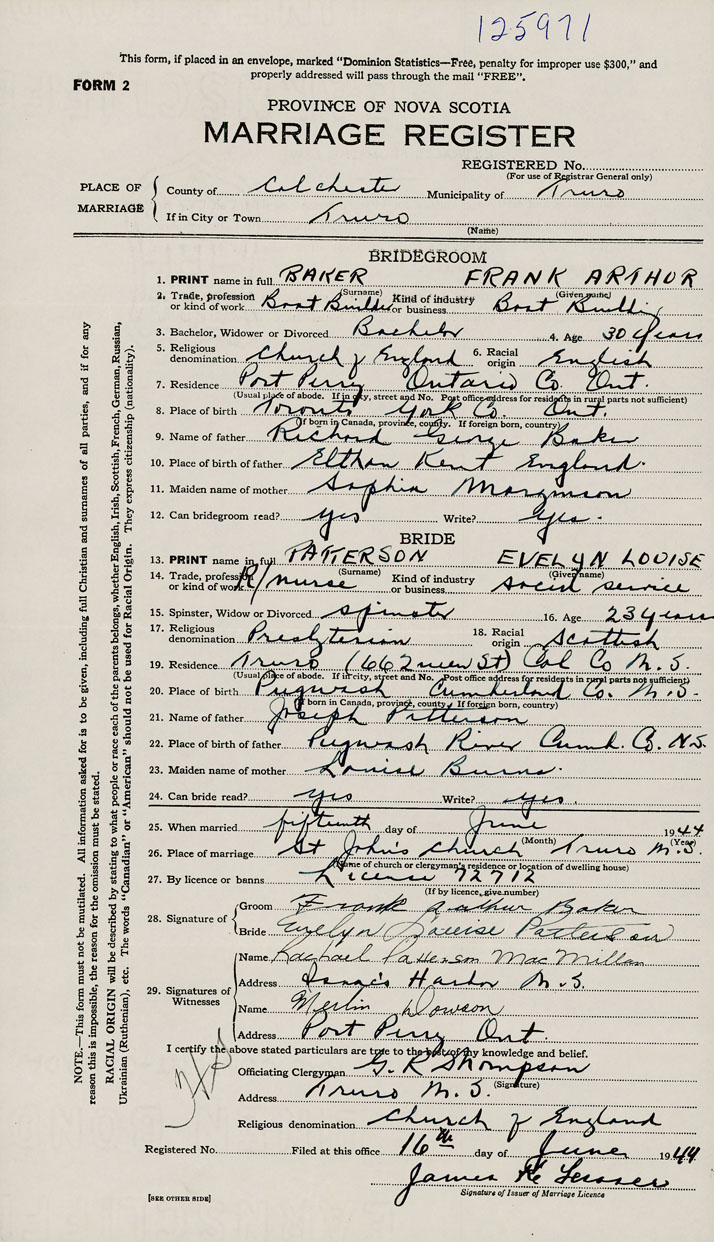 125971
This form, if placed in an envelope, marked "Dominion Statistics—Free, penalty for improper use $300," and
properly addressed will pass through the mail "FREE".
FORM 2
PROVINCE OF NOVA SCOTIA
MARRIAGE REGISTER
REGISTERED No.
(For use of Registrar General only)
PLACE OF MARRIAGE
County of Colchester Municipality of Truro
If in City or Town Truro
(Name)
BRIDEGROOM
1. PRINT name in full. BAKER FRANK ARTHUR
(Surname) (Given name)
2. Trade, profession or kind of work Boat Builder Kind of industry or business. Boat Building
3. Bachelor, Widower or Divorced Bachelor 4. Age 30 years
5. Religious denomination Church of England 6. Racial origin English
7. Residence Port Perry Ontario Co. Ont.
(Usual place of abode. If in city, street and No. Post office address for residents in rural parts not sufficient)
8. Place of birth Toronto York Co. Ont.
(If born in Canada, province, county. If foreign born, country)
9. Name of father Richard George Baker
10. Place of birth of father Elthan Kent England.
11. Maiden name of mother Sophia
12. Can bridegroom read? yes Write? yes.
BRIDE
13. PRINT name in full PATTERSON EVELYN LOUISE
(Surname) (Given name)
14. Trade, profession or kind of work R/nurse Kind of industry or business. social service
15. Spinster, Widow or Divorced spinster 16. Age 23 years
17. Religious denomination Presbyterian 18. Racial origin Scottish
19. Residence Truro (662 view St) Col Co N.S.
(Usual place of abode. If in city, street and No. Post office address for residents in rural parts not sufficient)
20. Place of birth Pugwash Cumberland Co. N.S.
(If born in Canada, province, county. If foreign born, country)
21. Name of father Joseph Patterson
22. Place of birth of father Pugwash River Cumb. Co. N.S.
23. Maiden name of mother Louise Burns.
24. Can bride read? yes Write? yes.
25. When married fifteenth day of June 1944
(Month) (Year)
26. Place of marriage St John's Church Truro N.S.
(Name of church or clergyman's residence or location of dwelling house)
27. By licence or banns License 72712
(If by licence, give number)
28. Signature of
Groom Frank Arthur Baker
Bride Evelyn Louise Patterson
29. Signatures of Witnesses
Name Rachael Patterson MacMillan
Address Isaac's Harbor N.S.
Name Merlin Dowson
Address Port Perry Ont.
I certify the above stated particulars are true to the best of my knowledge and belief.
Officiating Clergyman G. R Thompson
(Signature)
Address Truro N.S.
Religious denomination Church of England
Registered No. Filed at this office 16th day of June 1944
James
Signature of Issuer of Marriage Licence
[SEE OTHER SIDE]
NOTE.—This form must not be mutilated. All information asked for is to be given, including full Christian and surnames of all parties, and if for any
reason this is impossible, the reason for the omission must be stated.
RACIAL ORIGIN will be described by stating to what people or race each of the parents belongs, whether English, Irish, Scottish, French, German, Russian,
Ukrainian (Ruthenian), etc. The words "Canadian" or "American" should not be used for Racial Origin. They express citizenship (nationality).